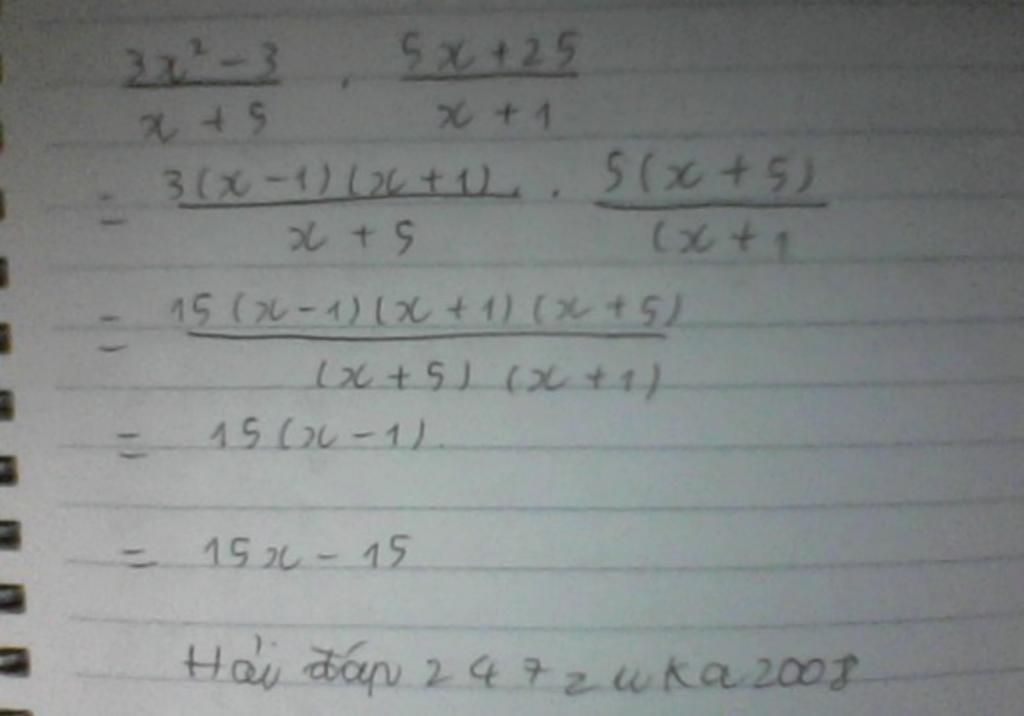 3x² - 3 . 5x + 25
x + 5 x + 1
= 3(x - 1)(x + 1) . 5(x + 5)
x + 5 (x + 1
= 15(x - 1)(x + 1)(x + 5)
(x + 5) (x + 1)
= 15(x - 1).
= 15x - 15
Hỏi đáp 247 zuka2008